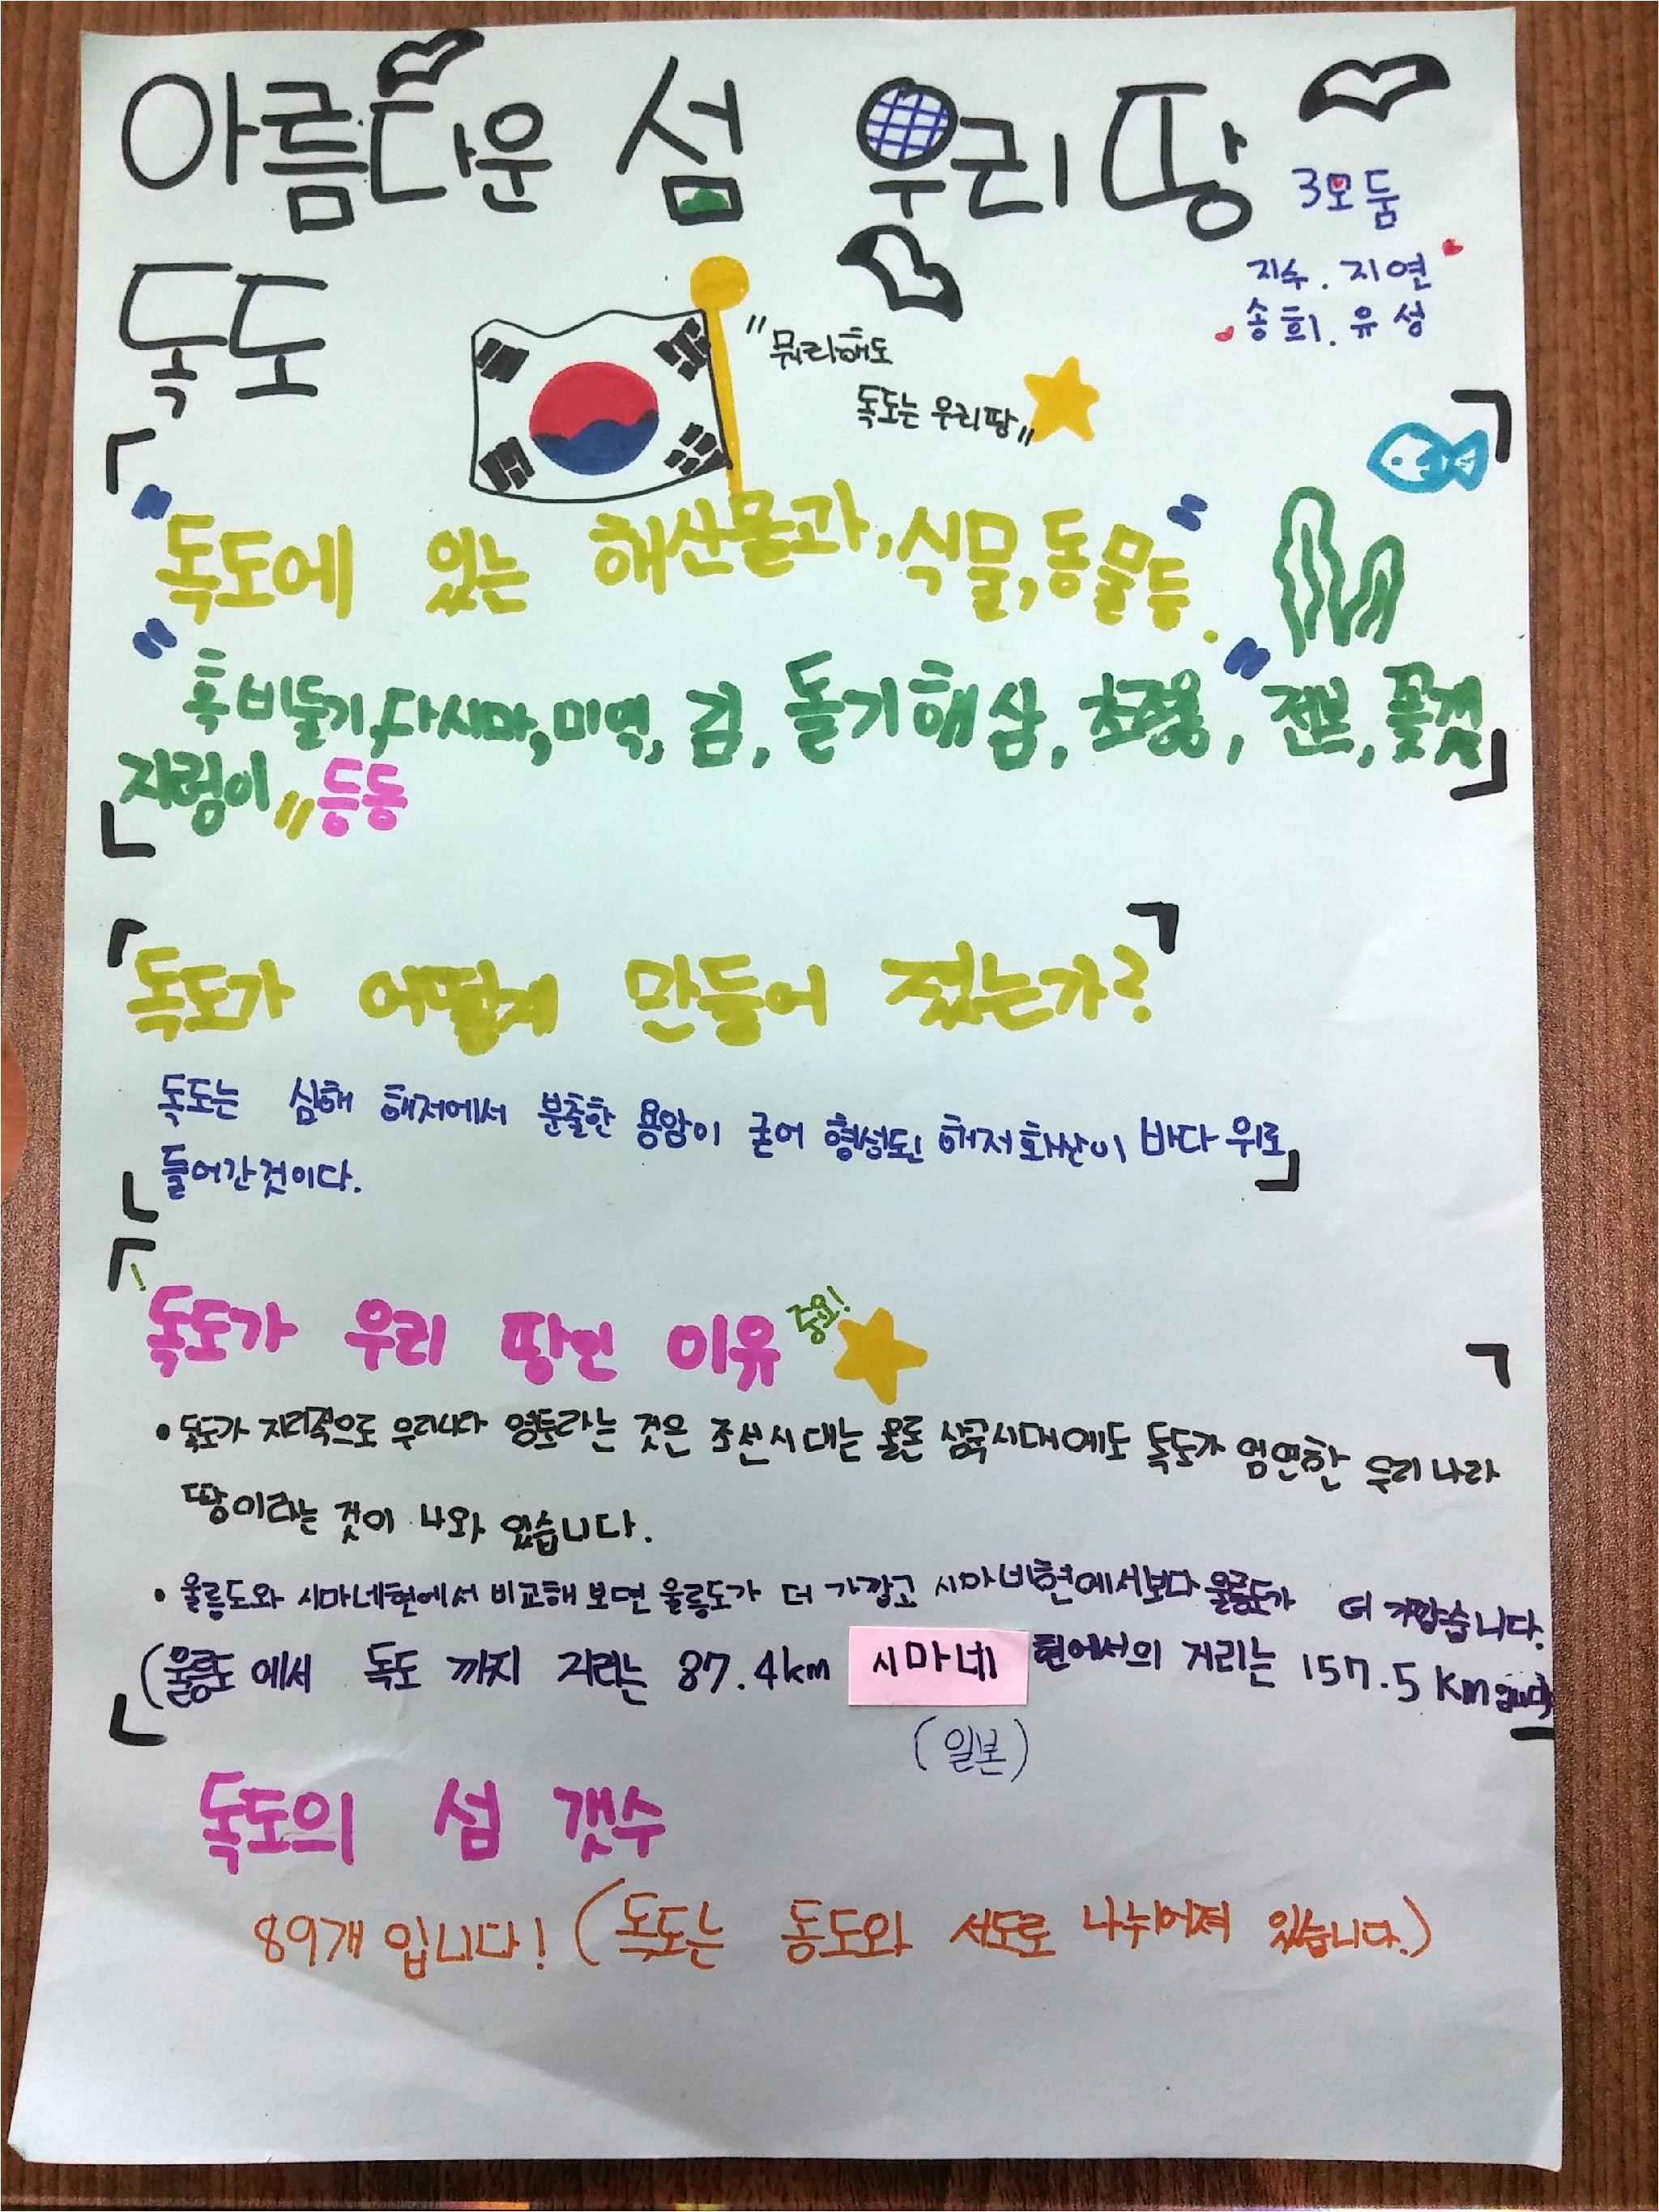 아름다운 섬 우리땅
3모둠
독도
지수. 지연
송희. 유성
"뭐라해도
독도는 우리땅"
"독도에 있는 해산물과, 식물, 동물등."
"흑비둘기, 다시마, 미역, 김, 돌기해삼, 초종용, 전복, 꽃갯
지렁이" 등등
독도가 어떻게 만들어 졌는가?
독도는 심해 해저에서 분출한 용암이 굳어 형성된 해저화산이 바다 위로
들어간것이다.
독도가 우리 땅인 이유 중요!
• 독도가 지리적으로 우리나라 영토라는 것은 조선시대는 물론 삼국시대에도 독도가 엄연한 우리나라
땅이라는 것이 나와 있습니다.
• 울릉도와 시마네현에서 비교해 보면 울릉도가 더 가깝고 시마네현에서보다 울릉도가 더 가깝습니다.
(울릉도에서 독도 까지 거리는 87.4km 시마네 현에서의 거리는 157.5 Km
(일본)
독도의 섬 갯수
89개 입니다! (독도는 동도와 서도로 나뉘어져 있습니다.)